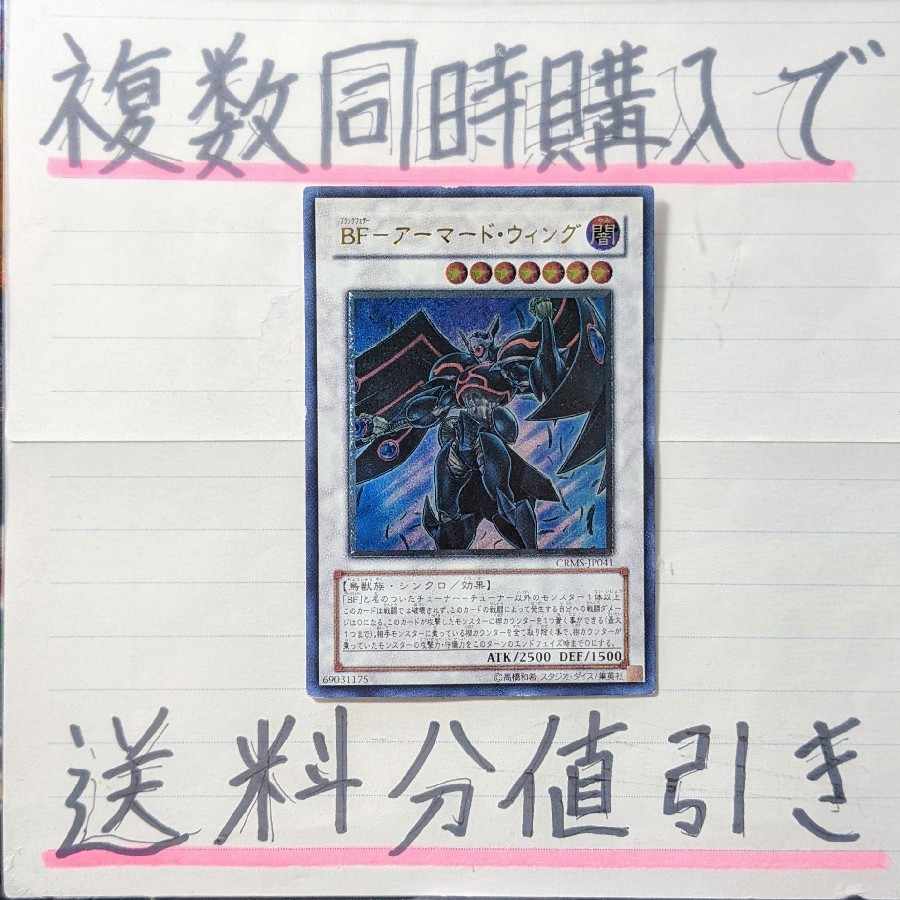 複数同時購入で
ブラックフェザー
BF－アーマード・ウィング
闇
CRMS-JP041
【鳥獣族・シンクロ／効果】
「BF」と名のついたチューナー＋チューナー以外のモンスター１体以上
このカードは戦闘では破壊されず、このカードの戦闘によって発生する自分への戦闘ダメ
ージは０になる。このカードが攻撃したモンスターに楔カウンターを１つ置く事ができる（最大
１つまで）。相手モンスターに乗っている楔カウンターを全て取り除く事で、楔カウンターが
乗っていたモンスターの攻撃力・守備力をこのターンのエンドフェイズ時まで０にする。
ATK/2500 DEF/1500
69031175 ©高橋和希 スタジオ・ダイス／集英社
送料分値引き